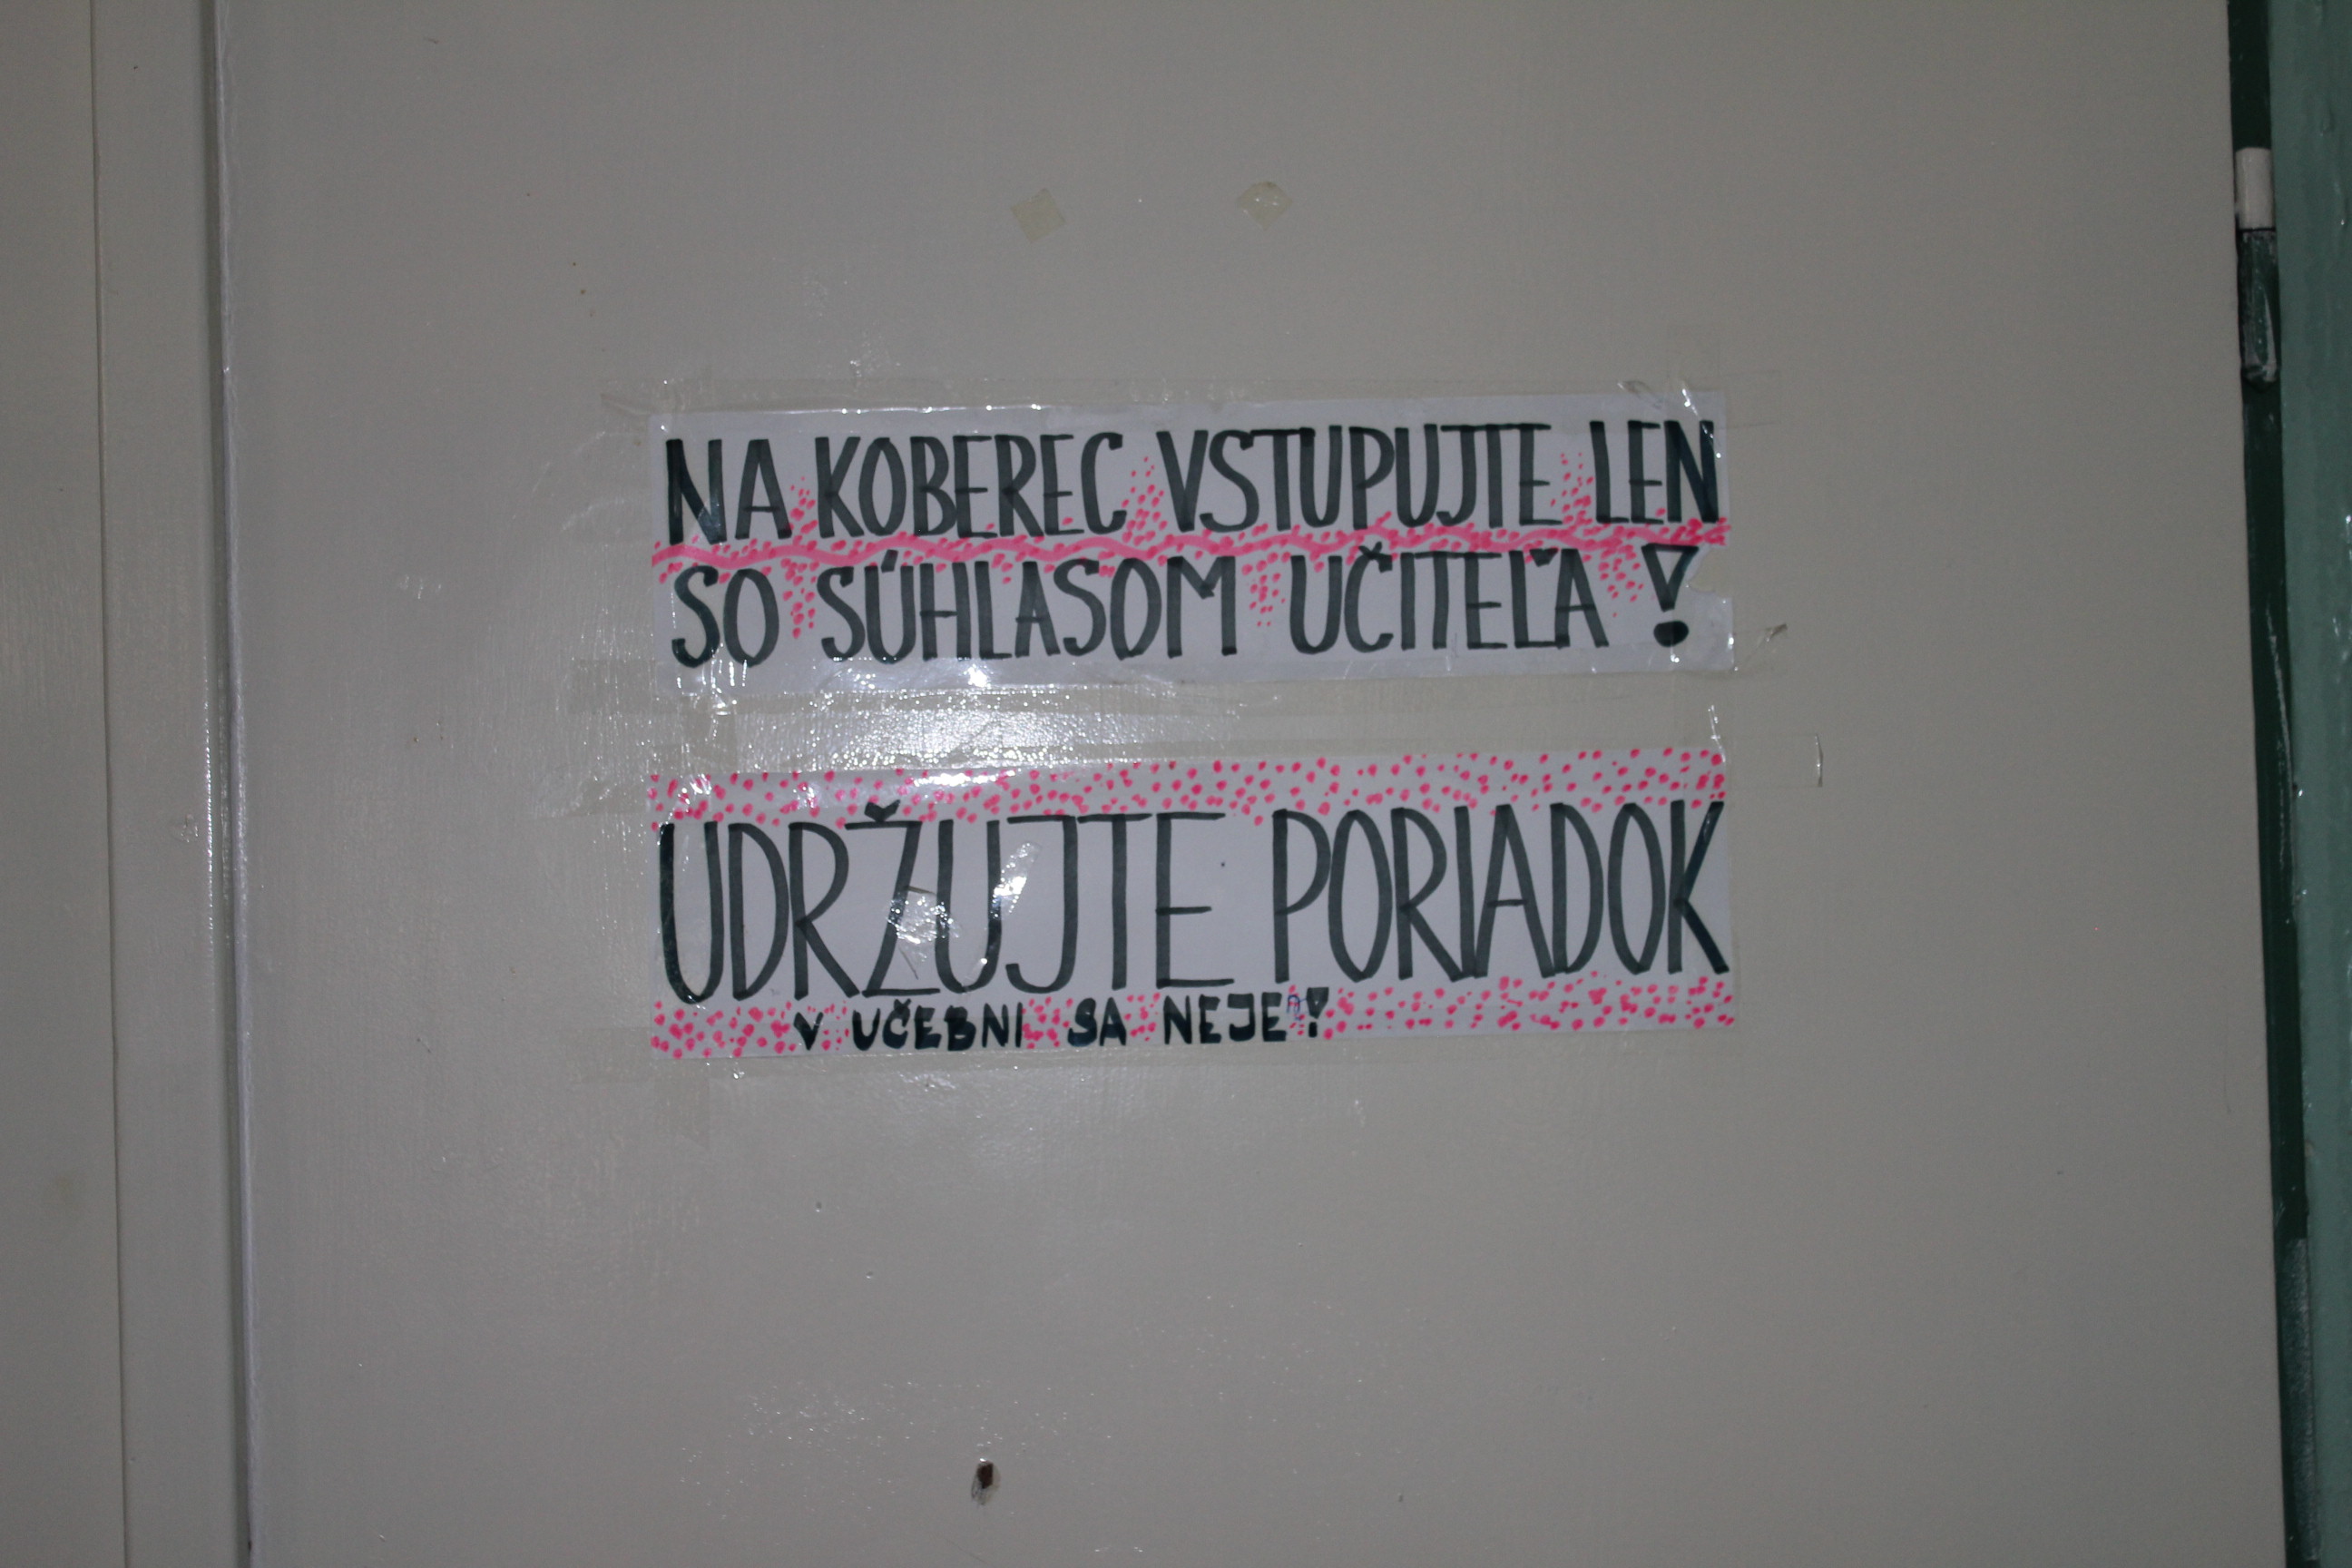 NA KOBEREC VSTUPUJTE LEN
SO SÚHLASOM UČITEĽA !
UDRŽUJTE PORIADOK
V UČEBNI SA NEJE !